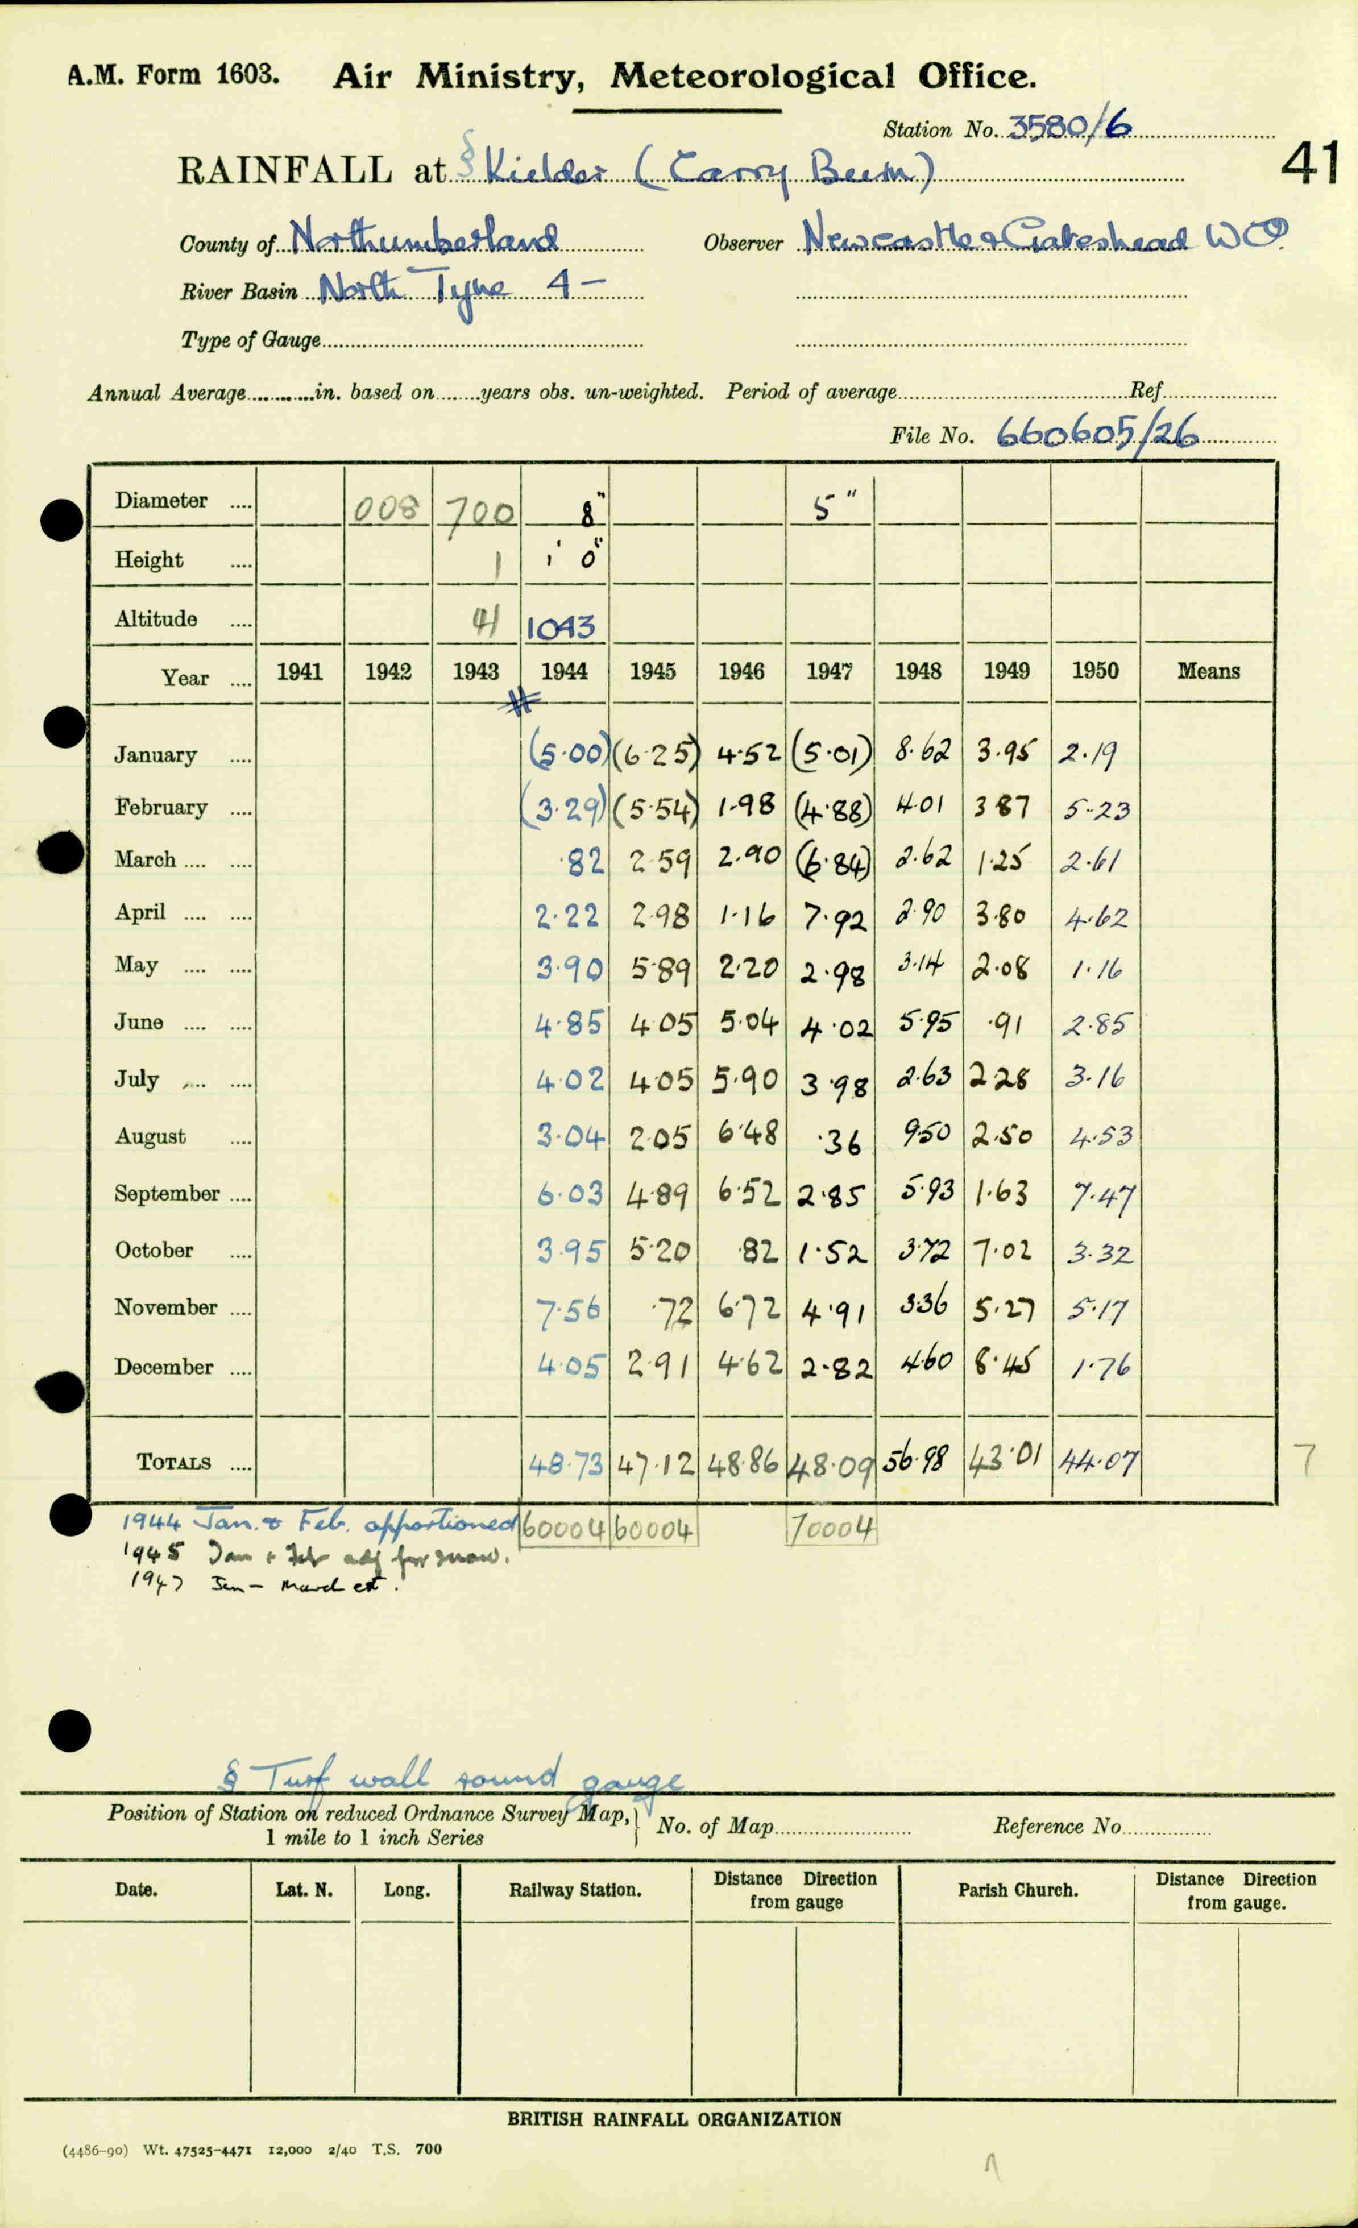 A.M. Form 1603. Air Ministry, Meteorological Office.
Station No. 3580/6
RAINFALL at § Kielder (Carry Burn) 41
County of Northumberland Observer Newcastle & Gateshead WCo.
River Basin North Tyne 4 –
Type of Gauge
Annual Average in. based on years obs. un-weighted. Period of average Ref
File No. 660605/26
Diameter 008 700 8" 5"
Height 1 1' 0"
Altitude 41 1043
Year 1941 1942 1943 1944 1945 1946 1947 1948 1949 1950 Means
January (5.00) (6.25) 4.52 (5.01) 8.62 3.95 2.19
February (3.29) (5.54) 1.98 (4.88) 4.01 3.87 5.23
March .82 2.59 2.90 (6.84) 2.62 1.25 2.61
April 2.22 2.98 1.16 7.92 2.90 3.80 4.62
May 3.90 5.89 2.20 2.98 3.14 2.08 1.16
June 4.85 4.05 5.04 4.02 5.95 .91 2.85
July 4.02 4.05 5.90 3.98 2.63 2.28 3.16
August 3.04 2.05 6.48 .36 9.50 2.50 4.53
September 6.03 4.89 6.52 2.85 5.93 1.63 7.47
October 3.95 5.20 .82 1.52 3.72 7.02 3.32
November 7.56 .72 6.72 4.91 3.36 5.27 5.17
December 4.05 2.91 4.62 2.82 4.60 8.45 1.76
TOTALS 48.73 47.12 48.86 48.09 56.98 43.01 44.07 7
1944 Jan. & Feb. apportioned 60004 60004 70004
1945 Jan + Feb adj for snow.
1947 Jan – March est.
§ Turf wall round gauge
Position of Station on reduced Ordnance Survey Map, 1 mile to 1 inch Series } No. of Map Reference No.
Date. Lat. N. Long. Railway Station. Distance Direction from gauge Parish Church. Distance Direction from gauge.
BRITISH RAINFALL ORGANIZATION
(4486–90) Wt. 47525–4471 12,000 2/40 T.S. 700